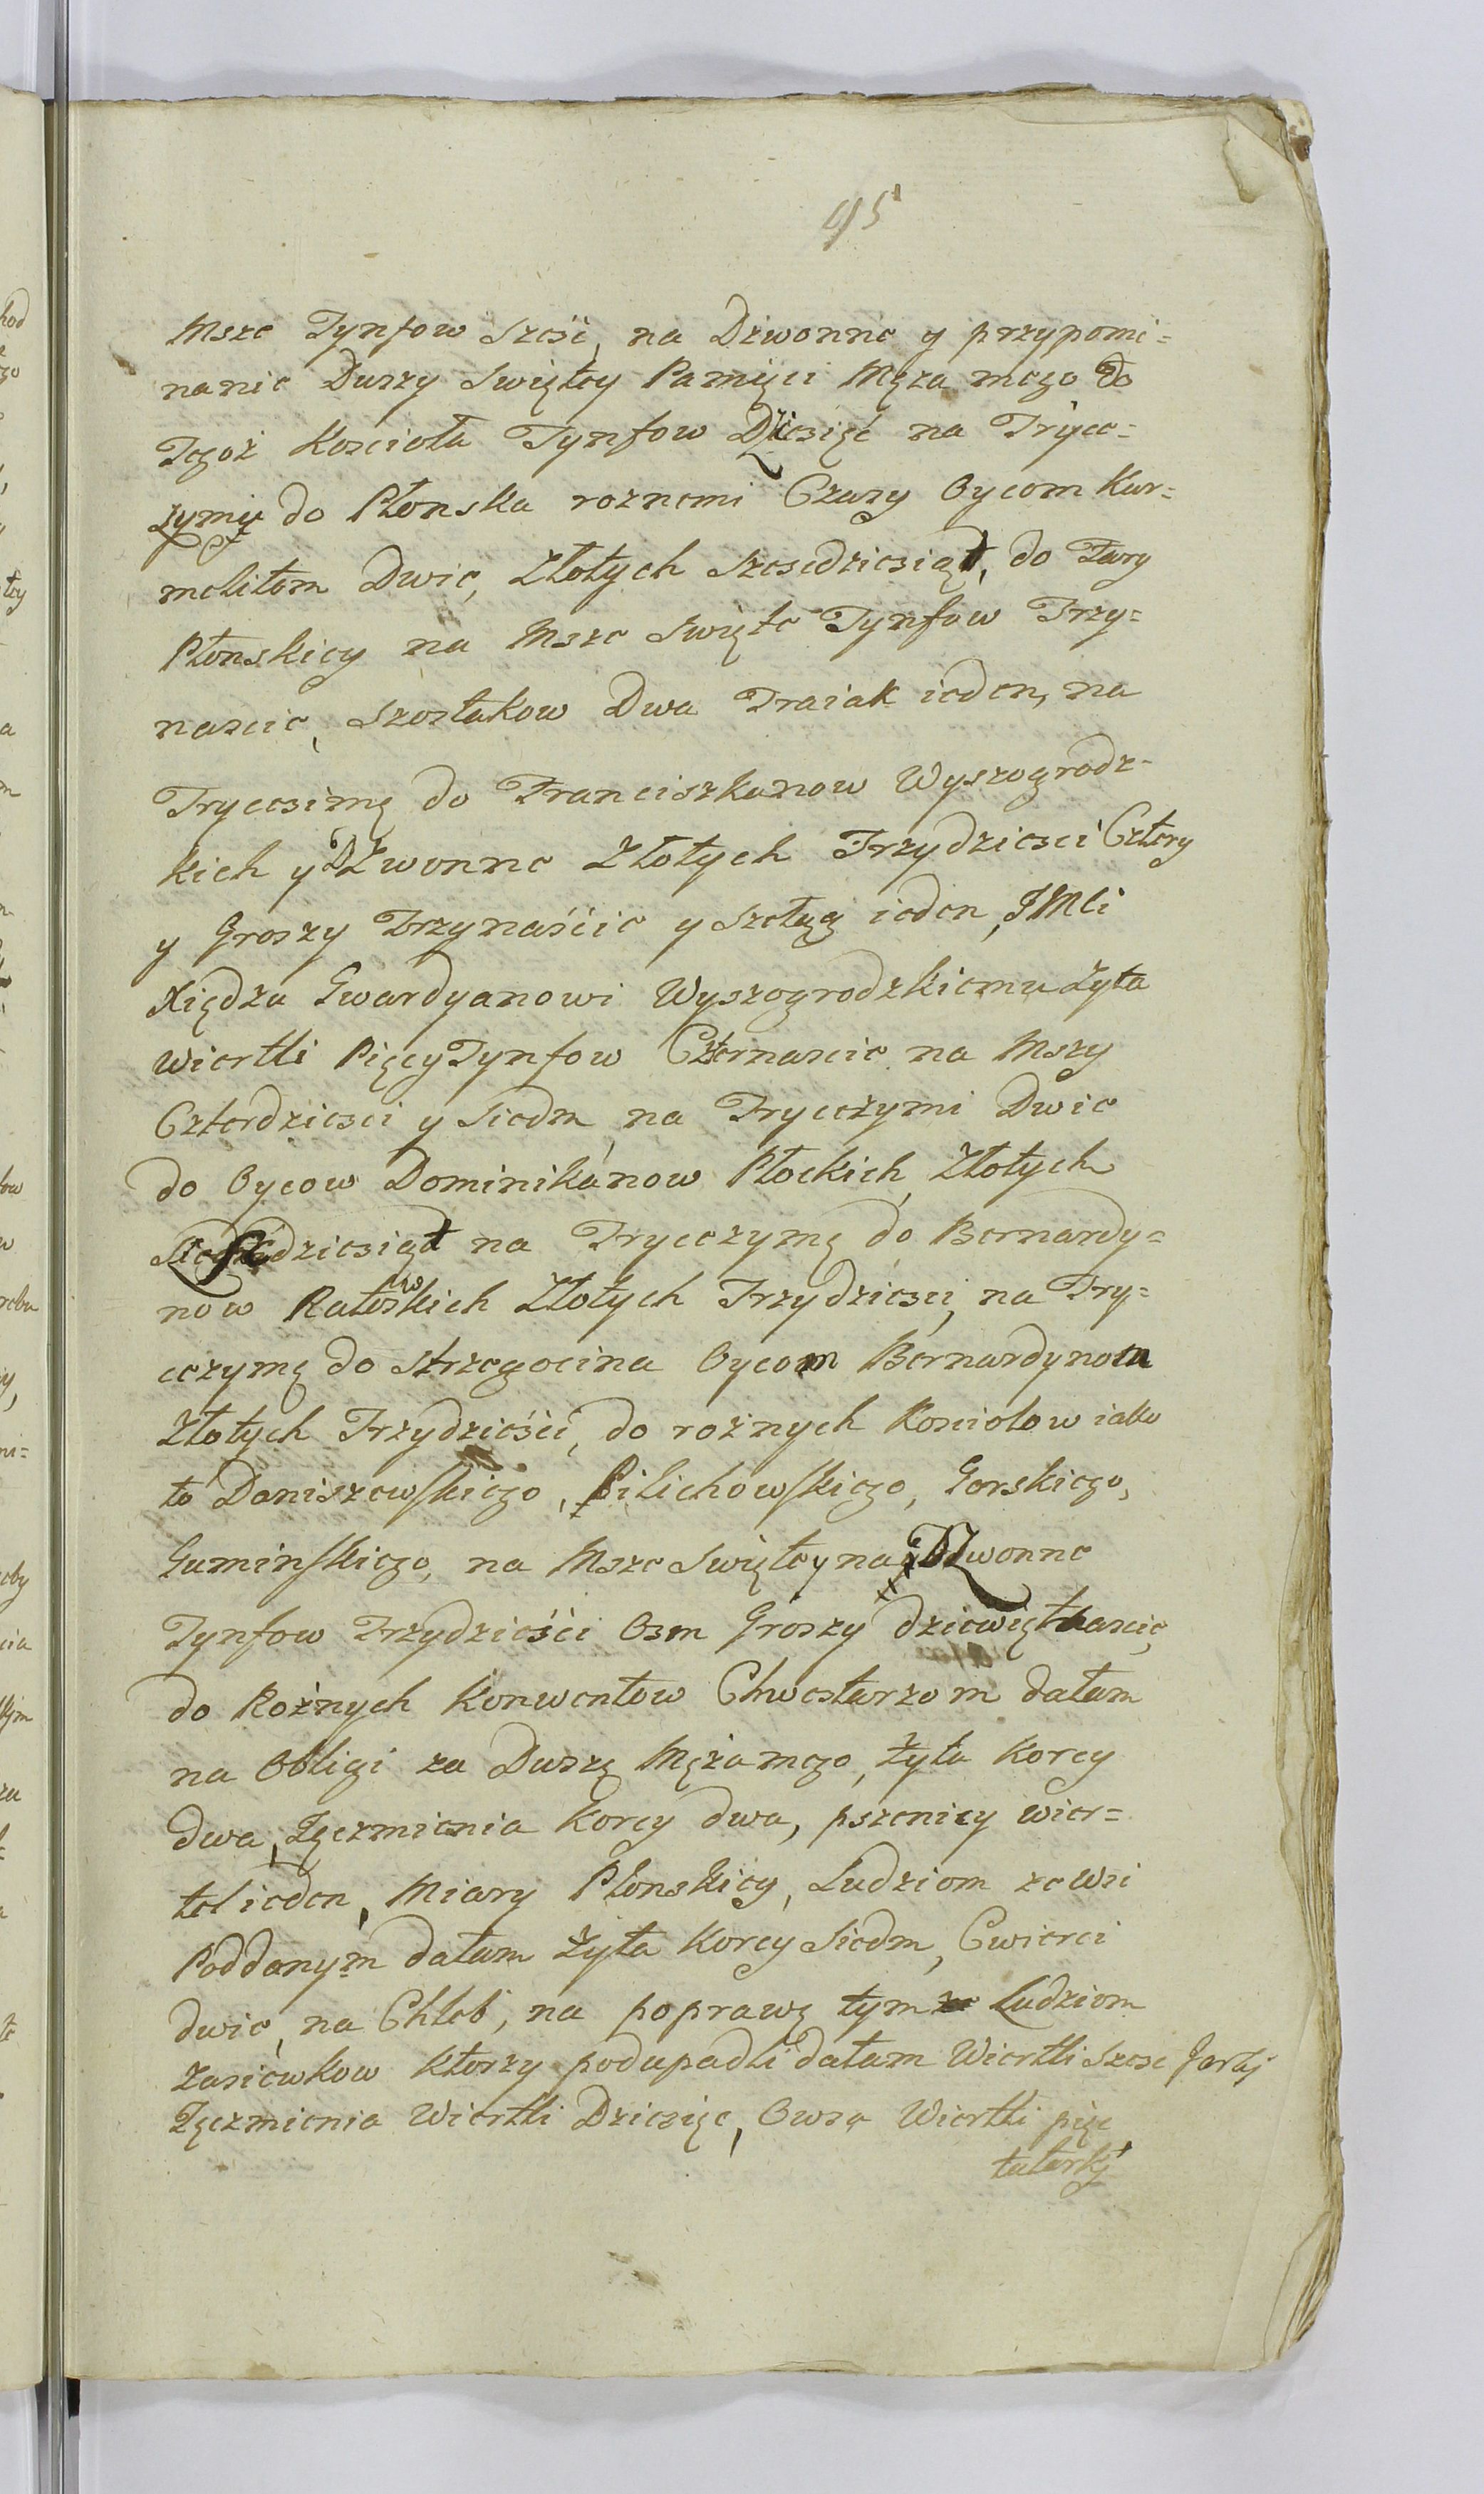 95
Msze Tynfow Szesć, na Dzwonne y przypomi=
nanie Duszy Swiętey Pamięci Męza mego do
Tegoż Kosciola Tynfow Dziesięć na Tryce=
zymę do Płonska roznemi Czasy Oycom Kar=
melitom Dwie, Złotych Szescdziesiąt, do Fary
Płonskiey na Msze Swięte Tynfow Trzy=
nascie, Szostakow Dwa Traiak ieden, na
Trycesimę do Franciszkanow Wyszogrodz-
kich y Dzwonne Złotych Trzydziesci Cztery
y Groszy Trzynaście y Szeląg ieden, JMCi
Xiędza Gwardyanowi Wyszogrodzkiemu Zyta
Wiertli Pięcy Tynfow Czternascie na Mszy
Czterdziesci y Siedm, na Tryceżymi Dwie
do Oycow Dominikanow Płockich, Złotych
dziesiąt na Trycezymę do Bernardy=
now Ratowskich Złotych Trzydziesci, na Try=
cezymę do Strzegocina Oycom Bernardynom
Złotych Trzydzieści, do rożnych Kosiolow iako
to Daniszewskiego, Pilichowskiego, Gorskiego,
Guminskiego, na Msze Swiętey na Dzwonne
Tynfow Trzydzieści Osm Groszy dziewiętnascie,
do Rożnych Konwentow Chwestarzom dałam
na Obligi za Duszę Mężamego, Zyta Korcy
dwa, Jęczmienia Korcy dwa, pszenicy wier=
tel ieden, Miary Płonskiey, Ludziom ze Wsi
Poddanym dałam Zyta Korcy Siedm, Cwierci
dwie, na Chleb, na poprawę tym Ludziom
Zasiewkow ktorzy podupadli dałam Wiertli Szesc Jarki
Jęczmienia Wiertli Dziesięc, Owsa Wiertli pięc
tatarki